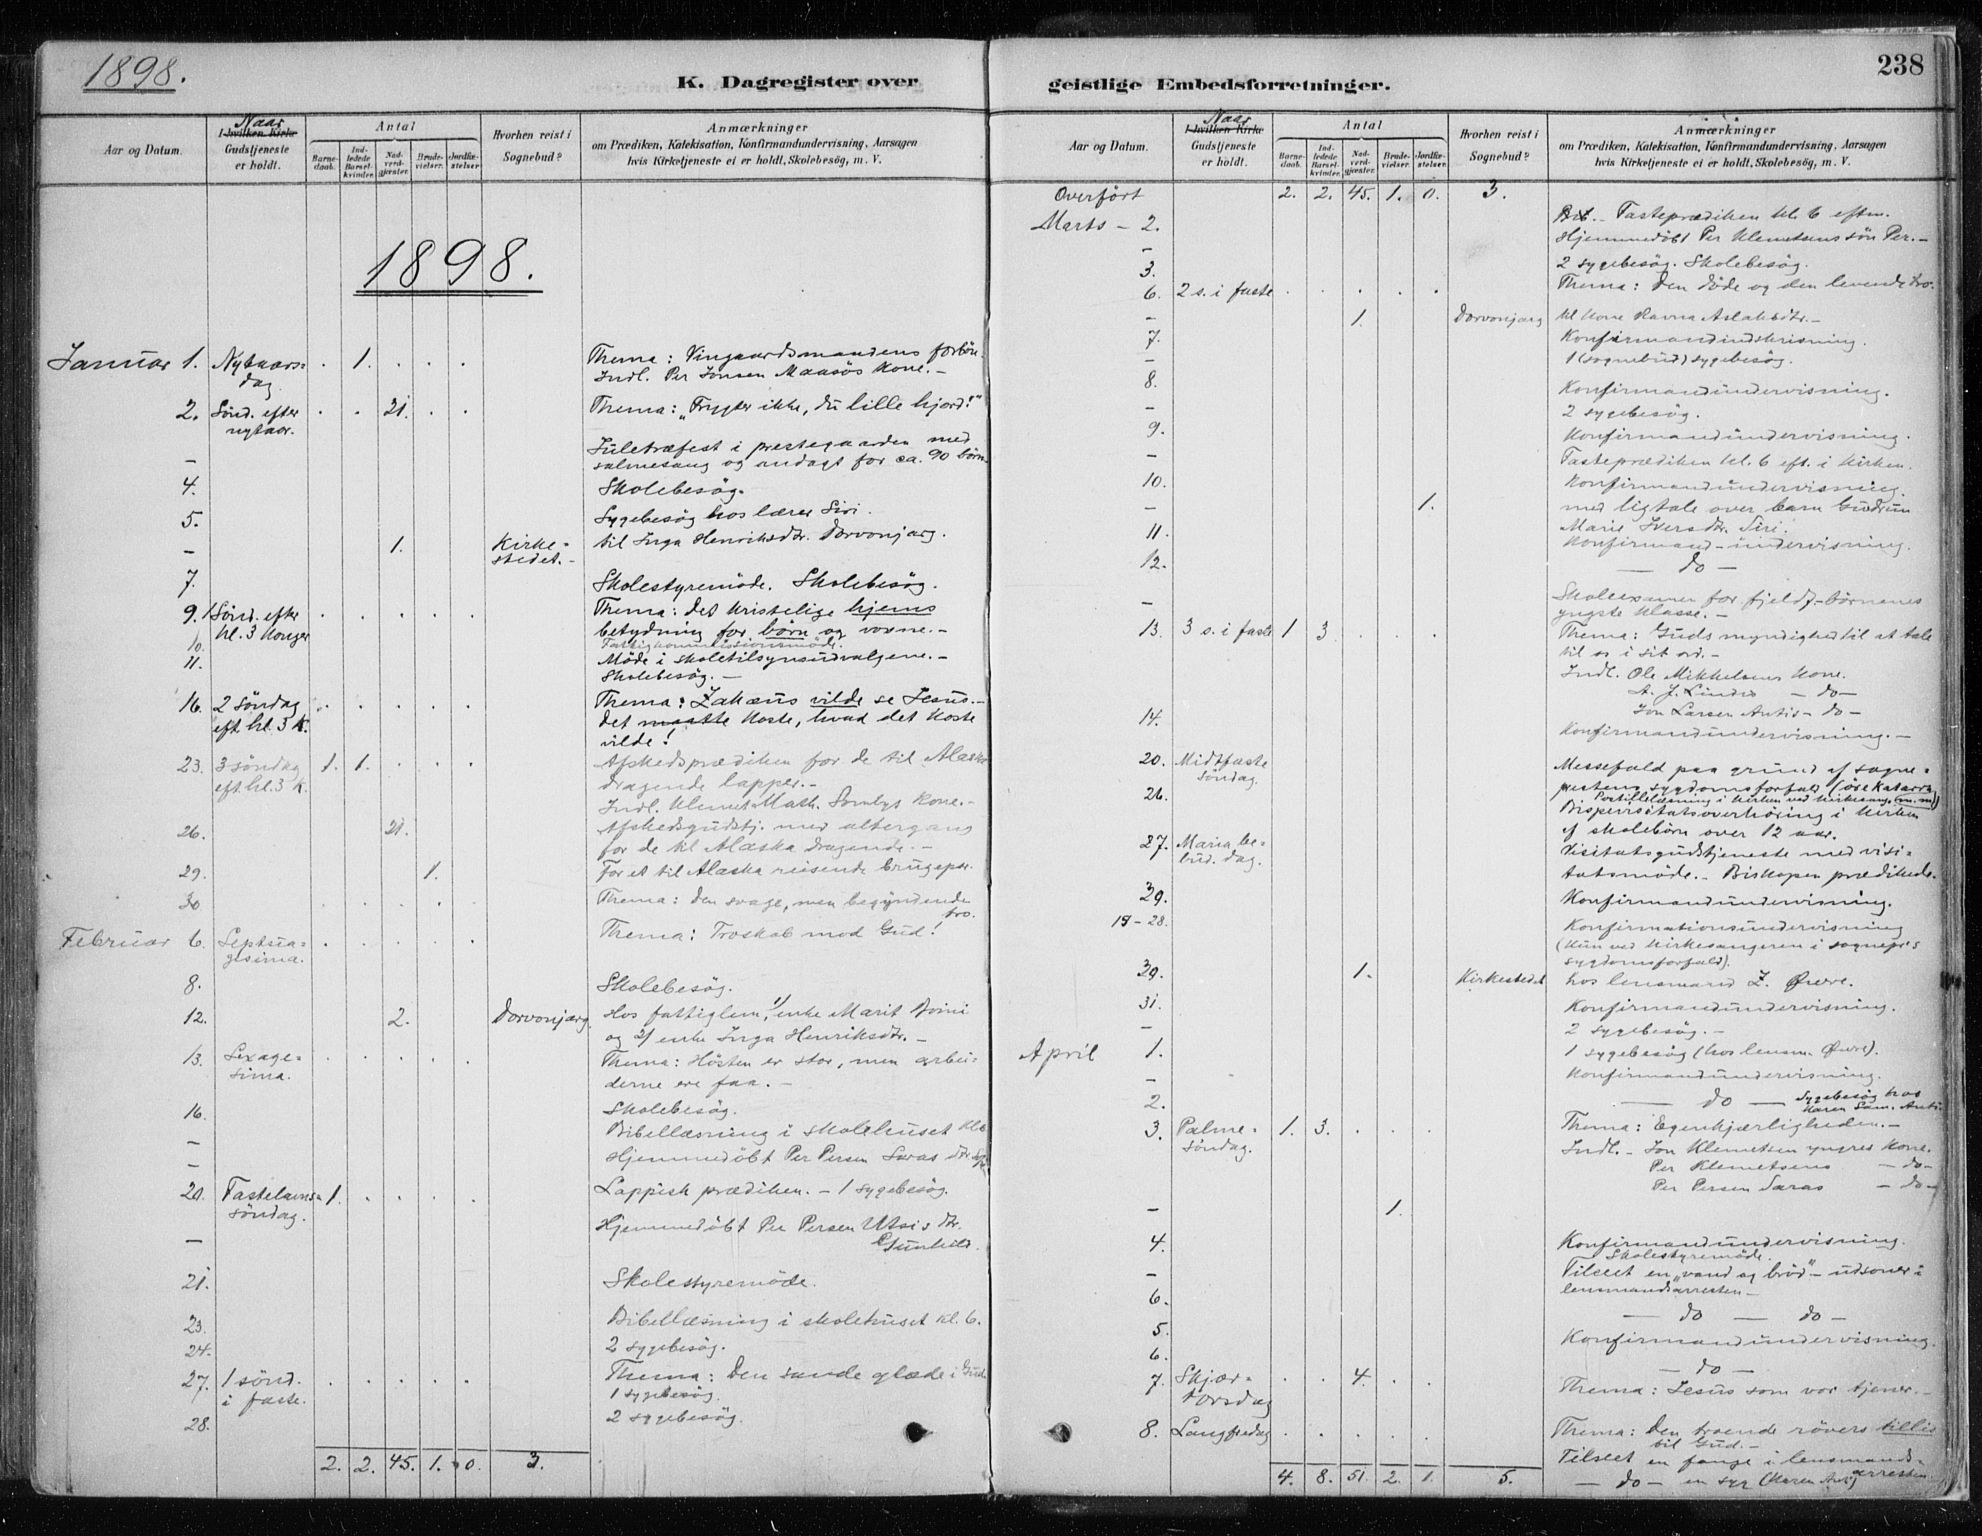 1898.
K. Dagregister over
Aar og Datum.
Naar
I hvilken Kirke
Gudstjeneste
er holdt.
Antal
Barne-
daab.
Ind-
ledede
Barsel-
kvinder.
Nad-
verd-
gjæster.
Brude-
vielser.
Jordfæ-
stelser.
Hvorhen reist i
Sognebud?
Anmærkninger
om Prædiken, Katekisation, Konfirmandundervisning, Aarsagen
hvis Kirketjeneste ei er holdt, Skolebesög, m. V.
1898.
Januar 1. Nytaars= . 1. . . . Thema: Vingaardsmandens forbön.
dag. Indl. Per Jonsen Maasös kone.-
2. Sönd. efter . . 21. . . Thema: "Frygter ikke, du lille hjord!"
nytaar.
- Juletræfest i prestegaarden med
salmesang og andagt for ca. 90 börn.
4. Skolebesög.
5. Sygebesög hos lærer Siri.
- 1. Kirke= til Inga Henriksdtr. Dorvonjarg.
stedet.-
7. Skolestyremöde. Skolebesög.
9. Sönd. efter . . . . . Thema: Det kristelige hjems
hl. 3 konger betydning for börn og voxne.-
10. Fattigkommissionsmöde.
11. Möde i skoletilsynsudvalgene.-
Skolebesög.-
16. 2 söndag . . . . . Thema: Zakæus vilde se Jesus.-
eft. hl. 3 K. Det maatte koste, hvad det koste
vilde!
23. 3 söndag 1. 1. . . . Afskedsprædiken for de til Alaska
eft. hl. 3 K. dragende lapper.-
Indl. Klemet Math. Sombys kone.-
26. 21. Afskedsgudstj. med altergang
for de til Alaska dragende.-
29. 1. For et til Alaska reisende brudepar.
30 . . . . . Thema: Den svage, men begyndende
tro.
Februar 6. Septua= . . . . . Thema: Troskab mod Gud!
gesima.
8. Skolebesög.
12. 2. Dorvonjarg. Hos fattiglem, 1/ enke Marit Boini
og 2/ enke Inga Henriksdtr.-
13. Sexage= . . . . . Thema: Hösten er stor, men arbei=
sima. derne ere faa.-
16. Skolebesög.
- Bibellæsning i skolehuset kl. 6
- Hjemmedöbt Per Persen Saras dtr.
20. Fastelavns= 1. . . . . Lappisk prædiken. - 1 sygebesög.
söndag.
- Hjemmedöbt Per Persen Utsis dtr.
Gunhild.
21. Skolestyremöde.
23. Bibellæsning i skolehuset kl. 6.
24. 2 sygebesög.
27. 1 sönd. . . . . . Thema: Den sande glæde i Gud
i faste. 1 sygebesög.
28. 2 sygebesög.
2. 2. 45. 1. 0. 3.
geistlige Embedsforretninger.
238
Aar og Datum.
Naar
I hvilken Kirke
Gudstjeneste
er holdt.
Antal
Barne-
daab.
Ind-
ledede
Barsel-
kvinder.
Nad-
verd-
gjæster.
Brude-
vielser.
Jordfæ-
stelser.
Hvorhen reist i
Sognebud?
Anmærkninger
om Prædiken, Katekisation, Konfirmandundervisning, Aarsagen
hvis Kirketjeneste ei er holdt, Skolebesög, m. V.
Overført 2. 2. 45. 1. 0. 3.
Marts - 2. Fasteprædiken kl. 6 eftm.
- Hjemmedöbt Per Klemetsens sön Per.-
3. 2 sygebesög. Skolebesög.
6. 2 s. i faste . . . . . Thema: Den döde og den levende tro.
- 1. Dorvonjarg til kone Ravna Aslaksdtr.-
7. Konfirmandindskrivning.
- 1 (sognebud) sygebesög.
8. Konfirmandundervisning.
- 2 sygebesög.
9. Konfirmandundervisning.
- Fasteprædiken kl. 6 eft. i kirken.
10. Konfirmandundervisning.
- 1. med ligtale over barn Gudrun
Marie Iversdtr. Siri.
11. Konfirmand-undervisning.
12. - do -
- Skoleexamen for fjeldf-börnenes
yngste klasse.-
13. 3 s. i faste 1 3 . . . Thema: Guds myndighed til at tale
til os i sit ord.-
Indl. Ole Mikkelsens kone.
A. J. Lindis - do -
Jon Larsen Antis - do -
14. Konfirmandundervisning.-
20. Midtfaste Messefald paa grund af sogne=
söndag. prestens sygdomsforfald (øre katarrh
Portillelæsning i kirken ved kirkesang. m.m)
26. Bispevisitatsoverhöring i kirken
af skolebörn over 12 aar.
27. Maria be= Visitatsgudstjeneste med visi=
bud. dag. tatsmöde.- Biskopen prædikede.
29. Konfirmandundervisning.
15-28. Konfirmationsundervisning
(kun ved kirkesangeren i sognepr's
sygdomsforfald).
30. 1. Kirkestedet hos lensmand Z. Øwre.
31. Konfirmandundervisning.
- 2 sygebesög.-
April 1. 1 sygebesög (hos lensm. Øwre).
- Konfirmandundervisning.
2. - do - Sygebesög hos
Karen Sam. Antis.
3. Palme= 1. 3. . . . Thema: Egenkjærligheden.-
söndag. Indl.- Jon Klemetsen yngres kone.
Per Klemetsens - do -
Per Persen Saras - do -
- 1.
4. Konfirmandundervisning.
Skolestyremöde.
- Tilseet en "vand og bröd"- udsoner i
lensmandsarresten-
6. - do - do -
5. Konfirmandundervisning.
6. - do -
7. Skjær= . . 4. . . Thema: Jesus som vor tjener.-
torsdag
8. Langfredag . . . . . Thema: Den troende rövers tillid
til Gud.-
Tilseet en fange i lensmands=
arresten.
- do - en syg (Karen Antis)
4. 8. 51. 2. 1. 5.